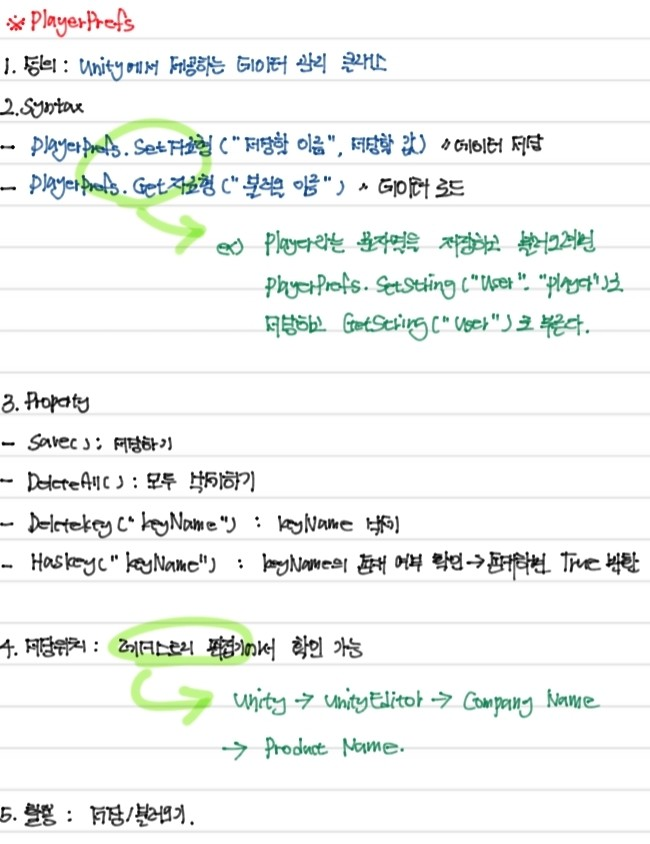 ※ PlayerPrefs
1. 정의 : Unity에서 제공하는 데이터 관리 클래스
2. Syntax
- PlayerPrefs.Set자료형 ("저장할 이름", 저장할 값) // 데이터 저장
- PlayerPrefs.Get자료형 ("불러올 이름") // 데이터 로드
ex) Player라는 문자열을 저장하고 불러오려면
PlayerPrefs.SetString ("User". "player")로
저장하고 GetString ("User") 로 부른다.
3. Property
- Save() : 저장하기
- DeleteAll() : 모두 삭제하기
- Deletekey ("keyName") : keyName 삭제
- Haskey("keyName") : keyName의 존재 여부 확인 → 존재하면 True 반환
4. 저장위치 : 레지스트리 편집기에서 확인 가능
Unity → UnityEditor → Company Name
→ Product Name.
5. 활용 : 저장/불러오기.